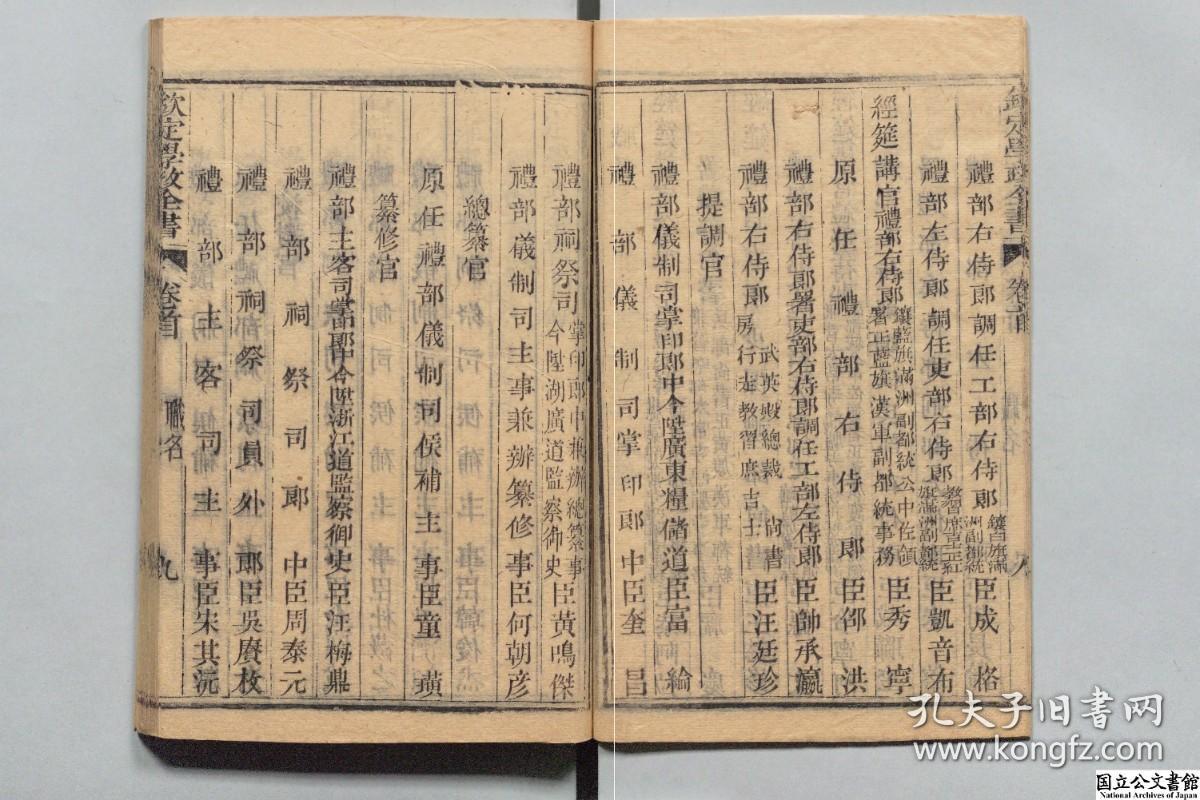 欽定學政全書 卷首 職名 八
禮部右侍郎調任工部右侍郎鑲白旗滿洲副都統臣成格
禮部左侍郎調任吏部右侍郎教習庶吉士正紅旗滿洲副都統臣凱音布
經筵講官禮部右侍郎鑲藍旗滿洲副都統公中佐領署正藍旗漢軍副都統事務臣秀寧
原任禮部右侍郎臣邵洪
禮部右侍郎署吏部右侍郎調任工部左侍郎臣帥承瀛
禮部右侍郎武英殿總裁尚書房行走教習庶吉士臣汪廷珍
提調官
禮部儀制司掌印郎中今陞廣東糧儲道臣富綸
禮部儀制司掌印郎中臣奎昌
禮部祠祭司掌印郎中兼辦總纂事今陞湖廣道監察御史臣黃鳴傑
禮部儀制司主事兼辦纂修事臣何朝彥
總纂官
原任禮部儀制司候補主事臣童璜
纂修官
禮部主客司掌印郎中今陞浙江道監察御史臣汪梅鼎
禮部祠祭司郎中臣周泰元
禮部祠祭司員外郎臣吳賡枚
禮部主客司主事臣朱其沅
欽定學政全書 卷首 職名 九
孔夫子旧书网
www.kongfz.com
国立公文書館
National Archives of Japan